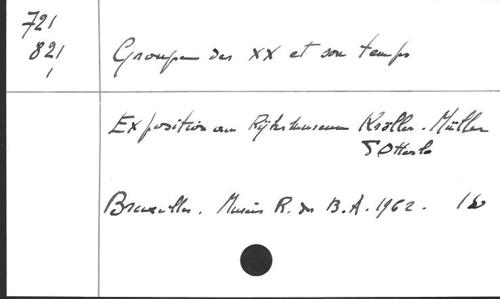 721
821
1
Groupe des XX et son temps
Exposition au Rijksmuseum Kröller-Müller
Otterlo
Bruxelles. Musées R. des B.A. 1962.